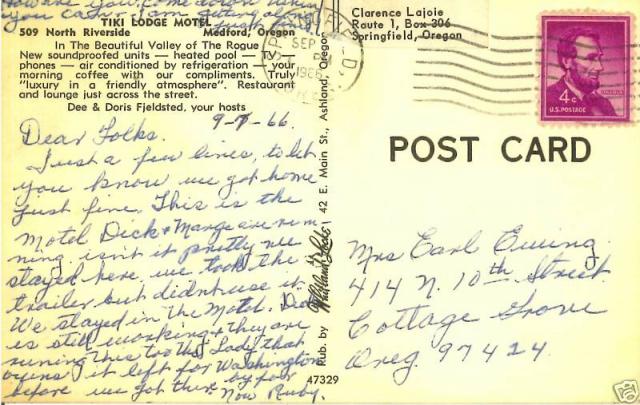 How are you. come down when
you can. I am
TIKI LODGE MOTEL
509 North Riverside Medford, Oregon
In The Beautiful Valley of The Rogue
New soundproofed units — heated pool —
phones — air conditioned by refrigeration — your
morning coffee with our compliments. Truly
"luxury in a friendly atmosphere". Restaurant
and lounge just across the street.
Dee & Doris Fjeldsted, your hosts
9-7-66.
Dear Folks.
Just a few lines, to let
you know we got home
just fine. This is the
Motel Dick & Marge are run-
ning isn't it pretty we
stayed here we took the
trailer but didn't use it.
We stayed in the Motel. Dad
is still working & they are
runing this too the Lady that
owns it left for Washington
before we got there by for
now Ruby.
Pub. by
42 E. Main St., Ashland, Oregon
47329
SPRINGFIELD,
SEP
PM
1966
Clarence Lajoie
Route 1, Box 306
Springfield, Oregon
4¢
U.S. POSTAGE
POST CARD
Mrs Earl Ewing
414 N. 10th Street
Cottage Grove
Oreg. 97424.